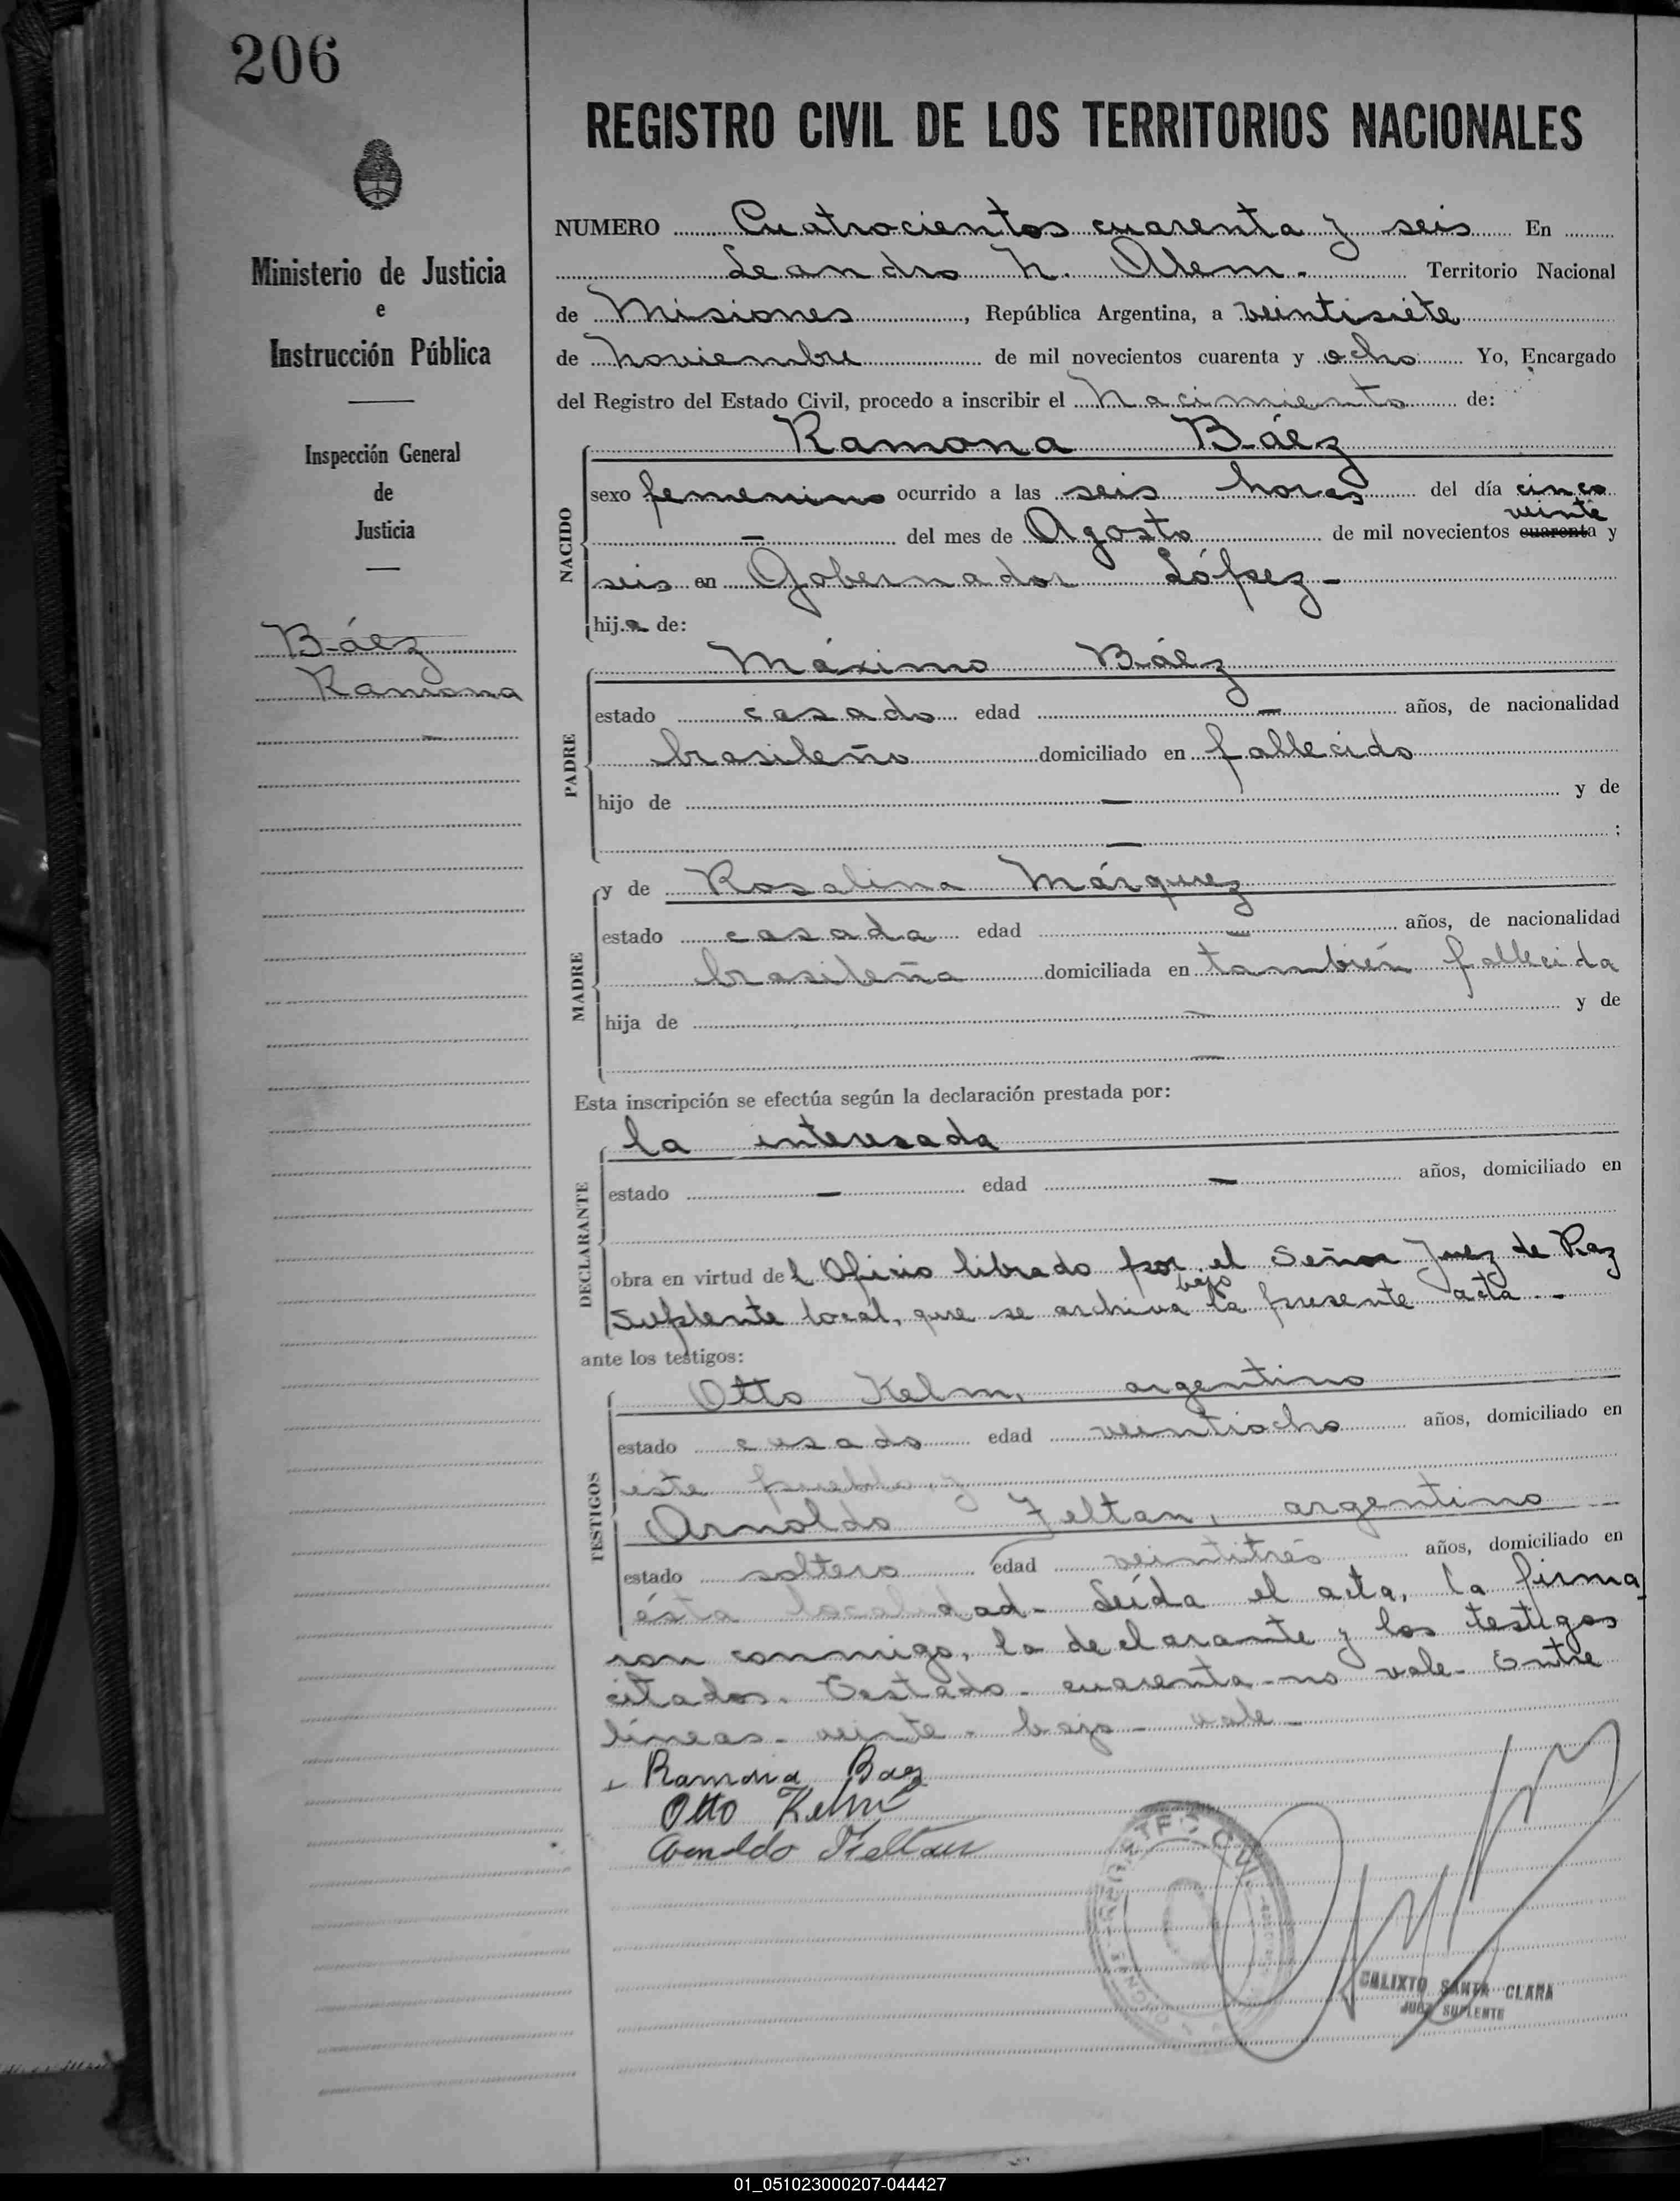 206
REGISTRO CIVIL DE LOS TERRITORIOS NACIONALES
Ministerio de Justicia
e
Instrucción Pública
Inspección General
de
Justicia
Báez
Ramona
NUMERO Cuatrocientos cuarenta y seis En
Leandro N. Alem. Territorio Nacional
de Misiones, República Argentina, a veintisiete
de Noviembre de mil novecientos cuarenta y ocho Yo, Encargado
del Registro del Estado Civil, procedo a inscribir el Nacimiento de:
NACIDO
Ramona Báez
sexo femenino ocurrido a las seis horas del día cinco
veinte
— del mes de Agosto de mil novecientos cuarenta y
seis en Gobernador López-
hija de:
PADRE
Máximo Báez
estado casado edad — años, de nacionalidad
brasileño domiciliado en fallecido
hijo de — y de
— ;
MADRE
y de Rosalina Márquez
estado casada edad — años, de nacionalidad
brasileña domiciliada en también fallecida
hija de — y de
—
Esta inscripción se efectúa según la declaración prestada por:
DECLARANTE
la interesada
estado — edad — años, domiciliado en
obra en virtud del Oficio librado por el Señor Juez de Paz
bajo
Suplente local, que se archiva la presente acta.-
ante los testigos:
TESTIGOS
Otto Kelm, argentino
estado casado edad veintiocho años, domiciliado en
este pueblo, y
Arnoldo Feltan, argentino
estado soltero edad veintitrés años, domiciliado en
ésta localidad- Leída el acta, la firma
ron conmigo, la declarante y los testigos
citados. Testado- cuarenta-no vale- Entre
líneas- veinte- bajo- vale-
Ramona Baz
Otto Kelm
Arnoldo Feltan
REGISTRO CIVIL
CALIXTO SANTA CLARA
JUEZ SUPLENTE
01_051023000207-044427